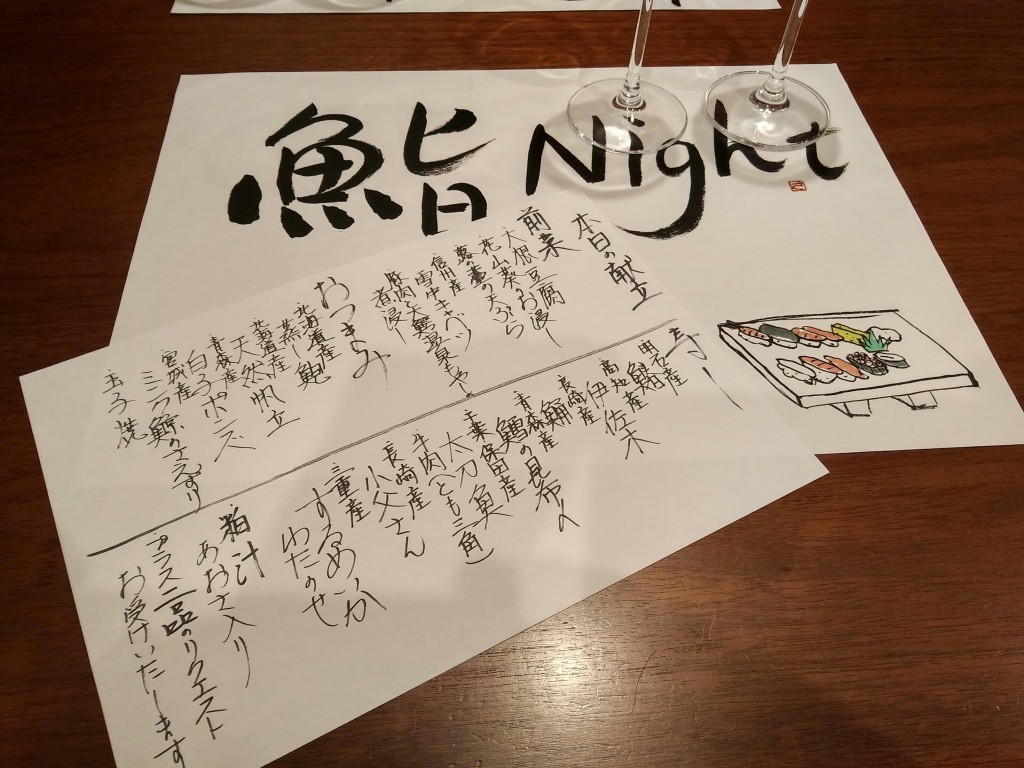 鮨 Night
本日の献立
前菜
大根豆腐
花山葵お浸し
蕗の薹の天ぷら
信州産
雪
お浸し
おつまみ
北海道産
蒸し鮑
北海道産
天然帆立
青森産
白子ポンズ
宮城産
ミンク鯨のさえずり
玉子焼
寿し
高知産
伊佐木
長崎産
青森産
鱈の昆布〆
千葉保田産
太刀魚
牛肉(とも三角)
長崎産
小父さん
三重産
するめいか
わたのせ
粕汁
あおさ入り
プラス一品のリクエスト
お受けいたします